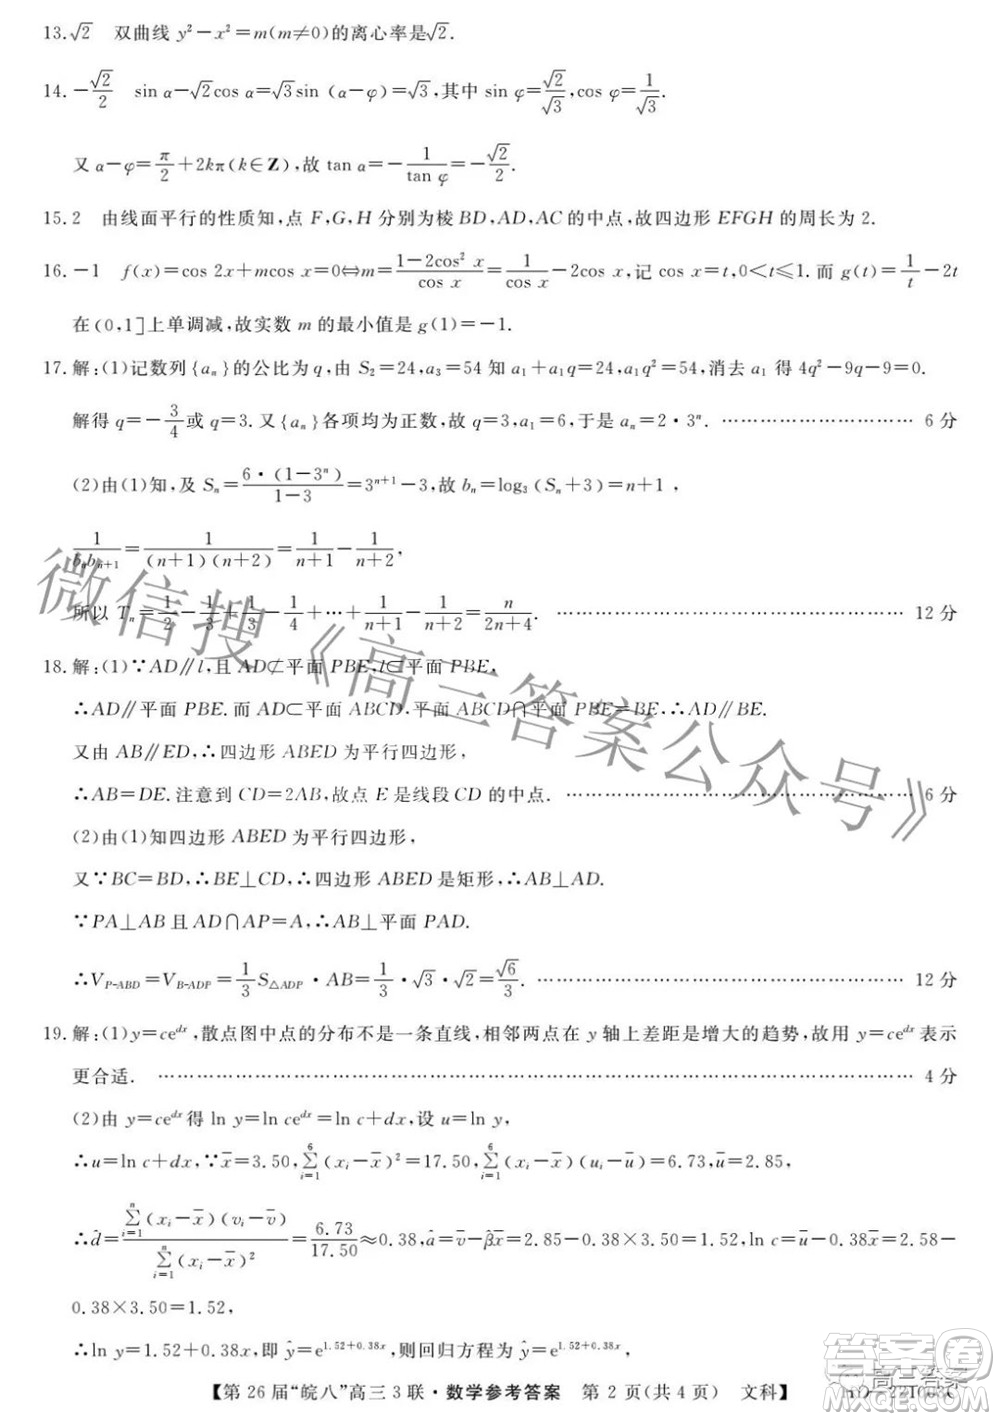 13.√2　双曲线 y²－x²＝m(m≠0)的离心率是√2.
14.－√2/2　sin α－√2cos α＝√3sin（α－φ）＝√3,其中 sin φ＝√2/√3,cos φ＝1/√3.
又 α－φ＝π/2＋2kπ(k∈Z),故 tan α＝－1/tan φ＝－√2/2.
15.2　由线面平行的性质知,点 F,G,H 分别为棱 BD,AD,AC 的中点,故四边形 EFGH 的周长为 2.
16.－1　f(x)＝cos 2x＋mcos x＝0⇔m＝(1－2cos² x)/cos x＝1/cos x－2cos x,记 cos x＝t,0＜t≤1.而 g(t)＝1/t－2t
在(0,1]上单调减,故实数 m 的最小值是 g(1)＝－1.
17.解:(1)记数列{aₙ}的公比为 q,由 S₂＝24,a₃＝54 知 a₁＋a₁q＝24,a₁q²＝54,消去 a₁ 得 4q²－9q－9＝0.
解得 q＝－3/4或 q＝3.又{aₙ}各项均为正数,故 q＝3,a₁＝6,于是 aₙ＝2・3ⁿ. ………………………… 6 分
(2)由(1)知,及 Sₙ＝6・(1－3ⁿ)/(1－3)＝3ⁿ⁺¹－3,故 bₙ＝log₃(Sₙ＋3)＝n＋1,
1/(bₙbₙ₊₁)＝1/((n＋1)(n＋2))＝1/(n＋1)－1/(n＋2),
所以 Tₙ＝1/2－1/3＋1/3－1/4＋…＋1/(n＋1)－1/(n＋2)＝n/(2n＋4). ………………………… 12 分
18.解:(1)∵AD∥l,且 AD⊄平面 PBE,l⊂平面 PBE,
∴AD∥平面 PBE.而 AD⊂平面 ABCD,平面 ABCD∩平面 PBE＝BE,∴AD∥BE.
又由 AB∥ED,∴四边形 ABED 为平行四边形,
∴AB＝DE.注意到 CD＝2AB,故点 E 是线段 CD 的中点. ………………………… 6 分
(2)由(1)知四边形 ABED 为平行四边形,
又∵BC＝BD,∴BE⊥CD,∴四边形 ABED 是矩形,∴AB⊥AD.
∵PA⊥AB 且 AD∩AP＝A,∴AB⊥平面 PAD.
∴V_P-ABD＝V_B-ADP＝1/3 S△ADP・AB＝1/3・√3・√2＝√6/3. ………………………… 12 分
19.解:(1)y＝ce^dx,散点图中点的分布不是一条直线,相邻两点在 y 轴上差距是增大的趋势,故用 y＝ce^dx表示
更合适. ………………………… 4 分
(2)由 y＝ce^dx得 ln y＝ln ce^dx＝ln c＋dx,设 u＝ln y,
∴u＝ln c＋dx,∵x̄＝3.50,∑(i=1→6)(xᵢ－x̄)²＝17.50,∑(i=1→6)(xᵢ－x̄)(uᵢ－ū)＝6.73,ū＝2.85,
∴d̂＝∑(i=1→n)(xᵢ－x̄)(vᵢ－v̄)/∑(i=1→n)(xᵢ－x̄)²＝6.73/17.50≈0.38,â＝v̄－β̂x̄＝2.85－0.38×3.50＝1.52,ln c＝ū－0.38x̄＝2.58－
0.38×3.50＝1.52,
∴ln y＝1.52＋0.38x,即 ŷ＝e^(1.52＋0.38x),则回归方程为 ŷ＝e^(1.52＋0.38x).
【第 26 届“皖八”高三 3 联・数学参考答案　第 2 页(共 4 页)　文科】
微信搜《高三答案公众号》
答案圈